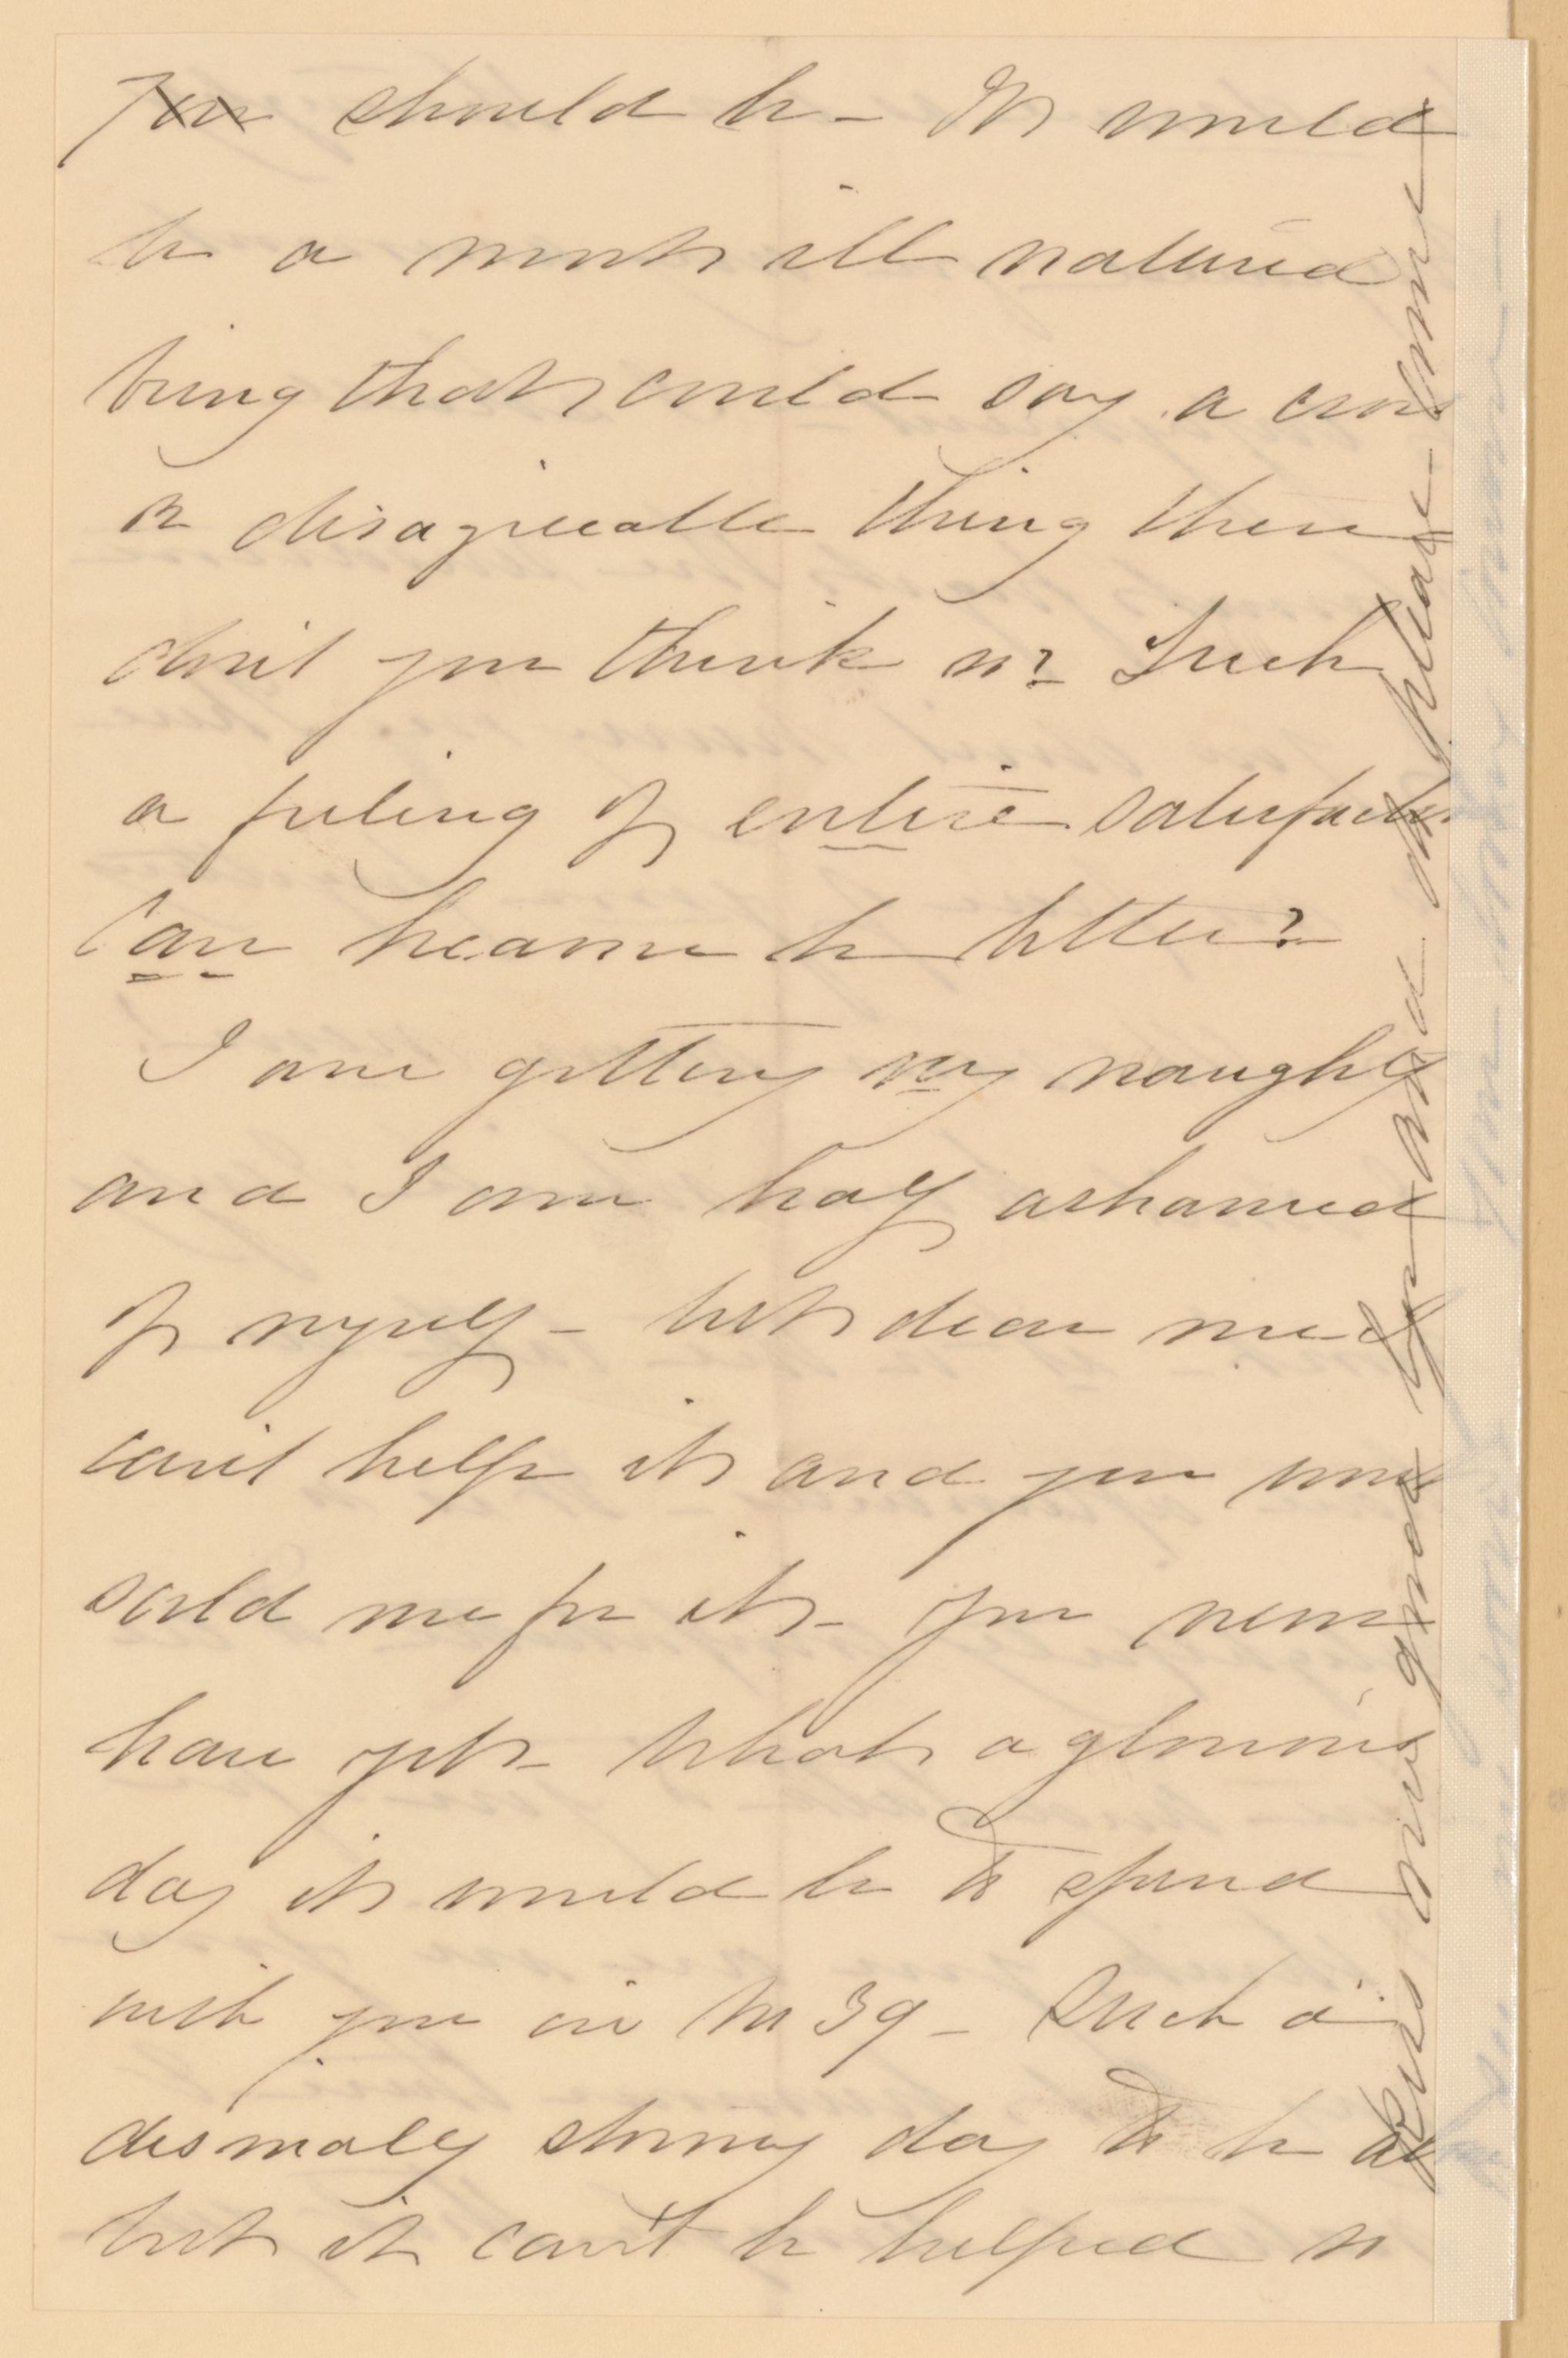 you should be – It would
be a most ill natured
being that could say a cross
or disagreeable thing there
don't you think so? Such
a feeling of entire satisfaction
Can heaven be better?
I am getting very naughty
and I am half ashamed
of myself – but dear me I
can't help it and you won't
scold me for it – you never
have yet – What a glorious
day it would be to spend
with you in No 39 – Such a
dismaly stormy day to be
but it can't be helped so
good bye and do please come